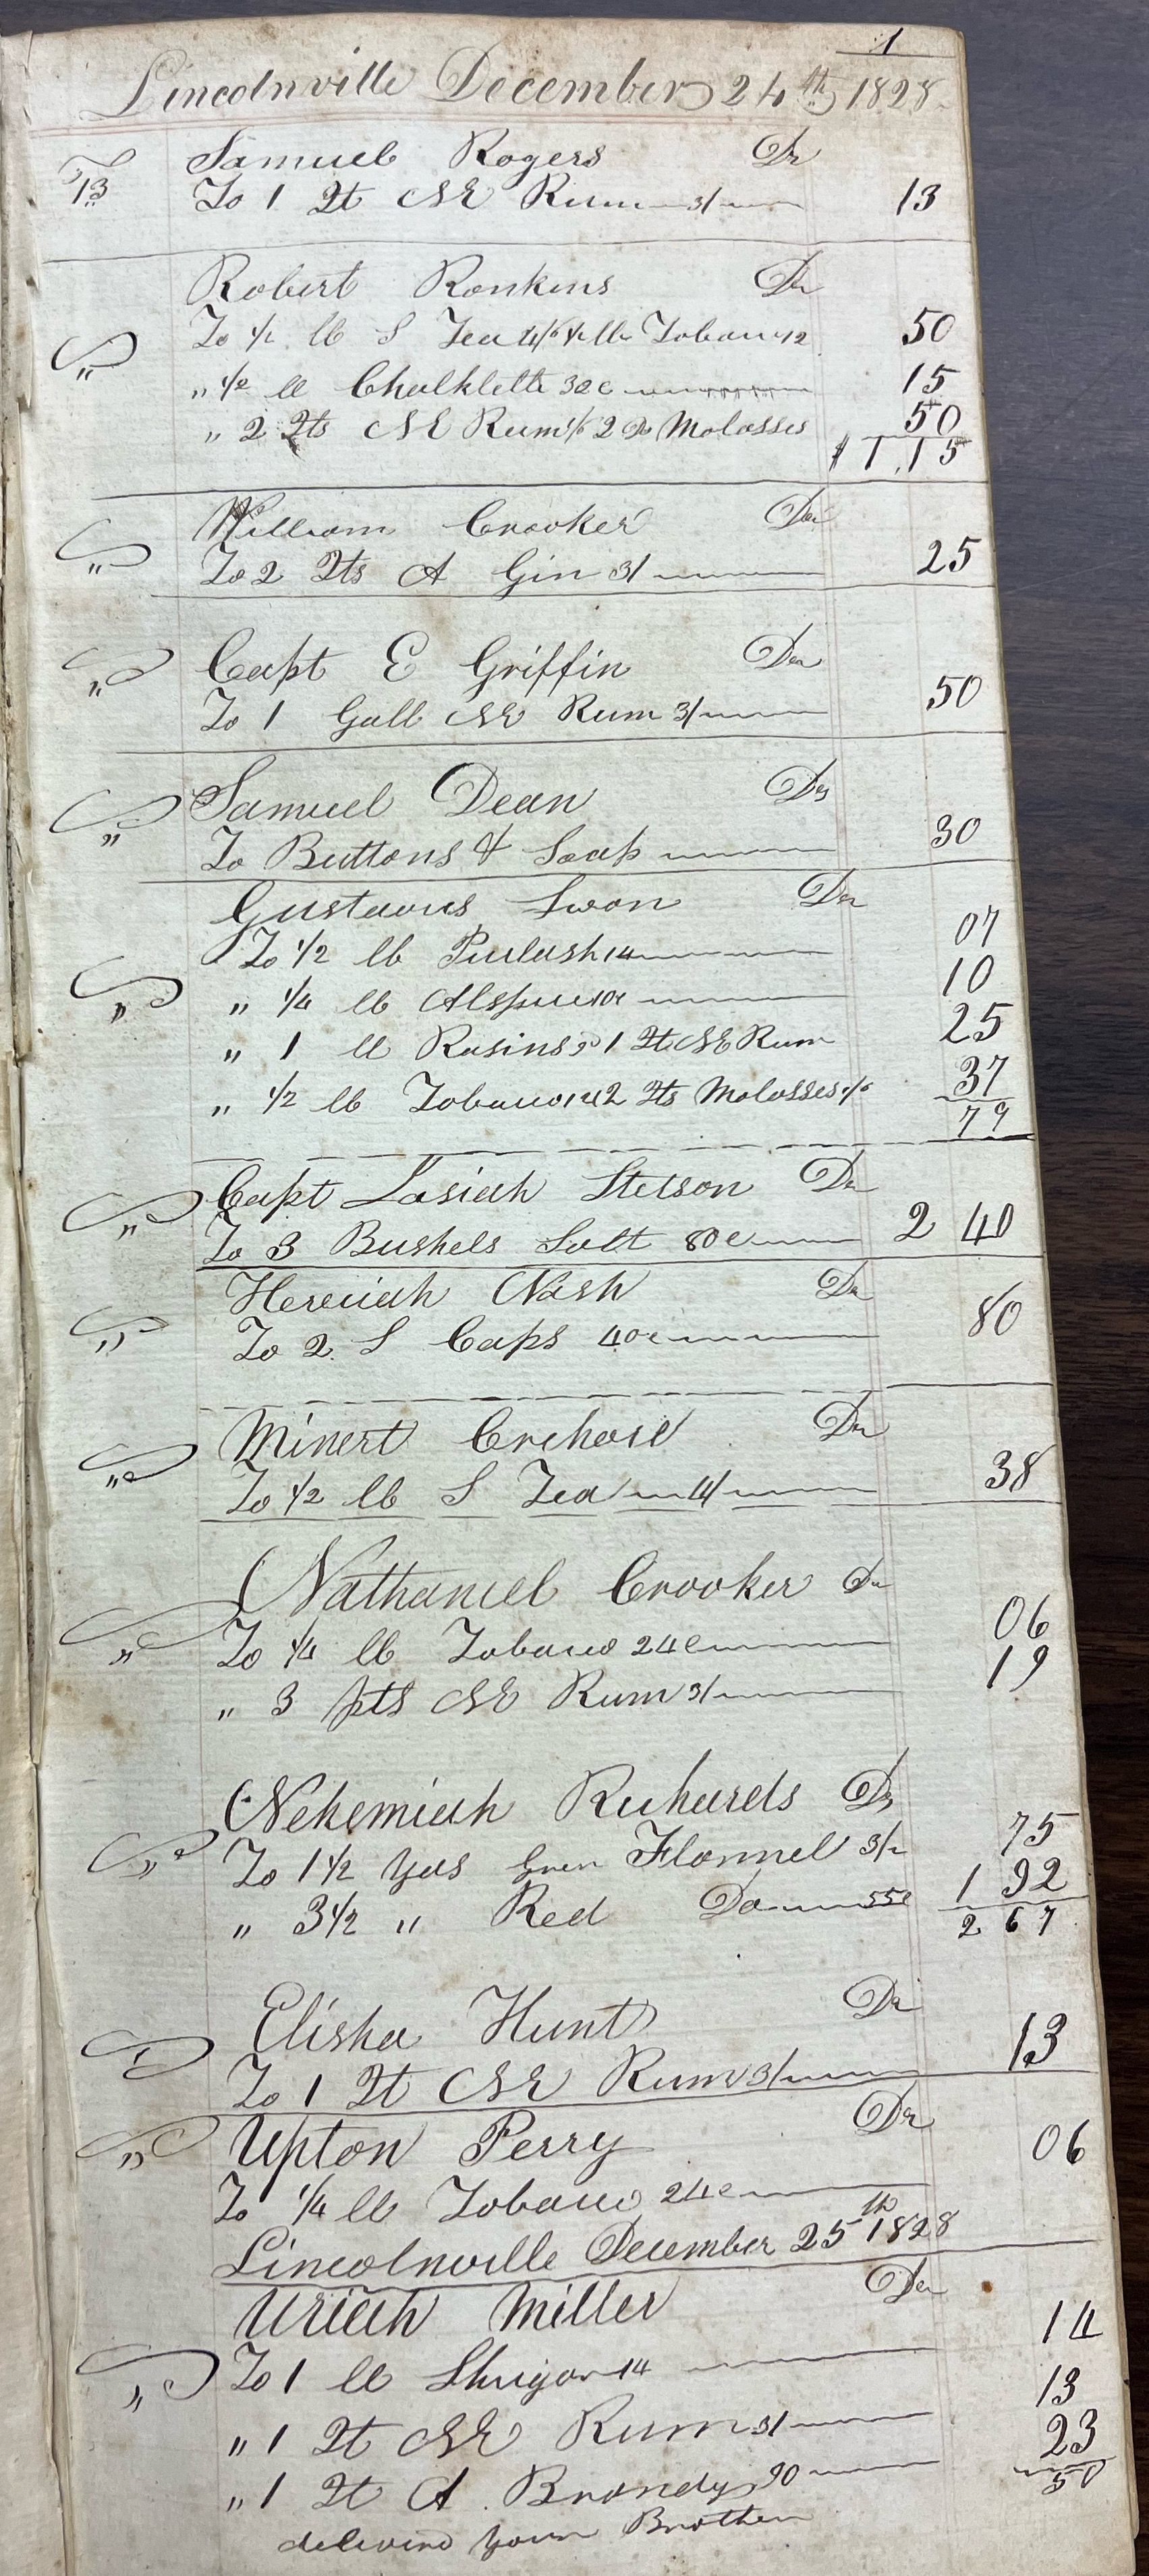 1
Lincolnville December 24th 1828
Samuel Rogers Dr
13 To 1 Qt NE Rum 3/ 13
Robert Ronkins Dr
To 1/2 lb S Tea 4/6 1/2 lb Tobacco 12 50
" 1/2 lb Chalklette 32c 15
" 2 Qts NE Rum 2 Do Molasses 50
$1,15
William Crooker Dr
To 2 Qts A Gin 3/ 25
Capt E Griffin Dr
To 1 Gall NE Rum 3/ 50
Samuel Dean Dr
To Buttons & Soap 30
Gustavus Swon Dr
To 1/2 lb Purlash 14 07
" 1/4 lb Alspice 10
" 1 lb Rasins 1 Qt NE Rum 25
" 1/2 lb Tobacco 2 Qts Molasses 1/6 37
79
Capt Josiah Stetson Dr
To 3 Bushels Salt 80c 2 40
Hezeciah Nash Dr
To 2 S Caps 40c 80
Minert Dr
To 1/2 lb S Tea 4/ 38
Nathaniel Crooker Dr
To 1/4 lb Tobacco 24c 06
" 3 pts NE Rum 3/ 19
Nehemiah Richards Dr
To 1 1/2 yds Green Flannel 3/ 75
" 3 1/2 " Red Do 55c 1 92
2 67
Elisha Hunt Dr
To 1 Qt NE Rum 3/ 13
Upton Perry Dr
To 1/4 lb Tobacco 24c 06
Lincolnville December 25th 1828
Uriah Miller Dr
To 1 lb Shugar 14 14
" 1 Qt NE Rum 3/ 13
" 1 Qt A Brandy 90 23
50
deliverd your Brother